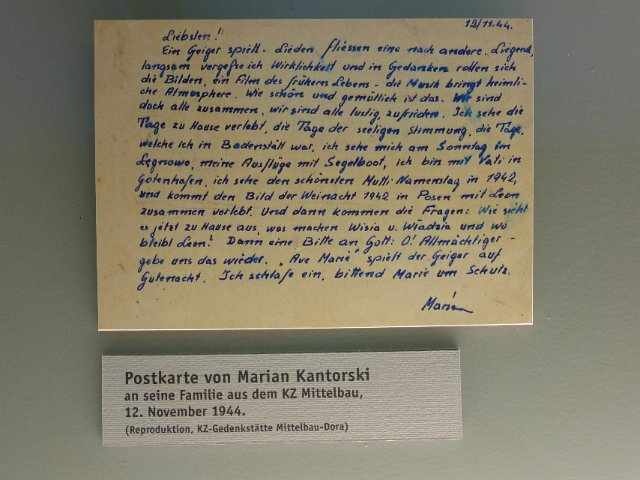 12/11.44.
Liebsten!
Ein Geiger spielt. Lieden fliessen eine nach andere. Liegend,
langsam vergeße ich Wirklichkeit und in Gedanken rollen sich
die Bilden, ein Film des früheres Lebens - die Musik bringt heimli-
che Atmosphere. Wie schön und gemütlich ist das. Wir sind
doch alle zusammen, wir sind alle lustig, zufriden. Ich sehe die
Tage zu Hause verlebt, die Tage der seeligen Stimmung, die Tage,
welche ich in Badenstätt war, ich sehe mich am Sonntag im
Legnowo, meine Ausflüge mit Segelboot, ich bin mit Vati in
Gotenhafen, ich sehe den schönsten Mutti-Namenstag in 1942,
und kommt den Bild der Weinacht 1942 in Posen mit Leon
zusammen verlebt. Und dann kommen die Fragen: Wie sieht
es jetzt zu Hause aus, was machen Wisia u. Wladzia und wo
bleibt Leon? Dann eine Bitte an Gott: O! Allmächtiger -
gebe uns das wieder. "Ave Marie" spielt der Geiger auf
Gutenacht. Ich schlafe ein, bittend Marie um Schutz.
Postkarte von Marian Kantorski
an seine Familie aus dem KZ Mittelbau,
12. November 1944.
(Reproduktion, KZ-Gedenkstätte Mittelbau-Dora)